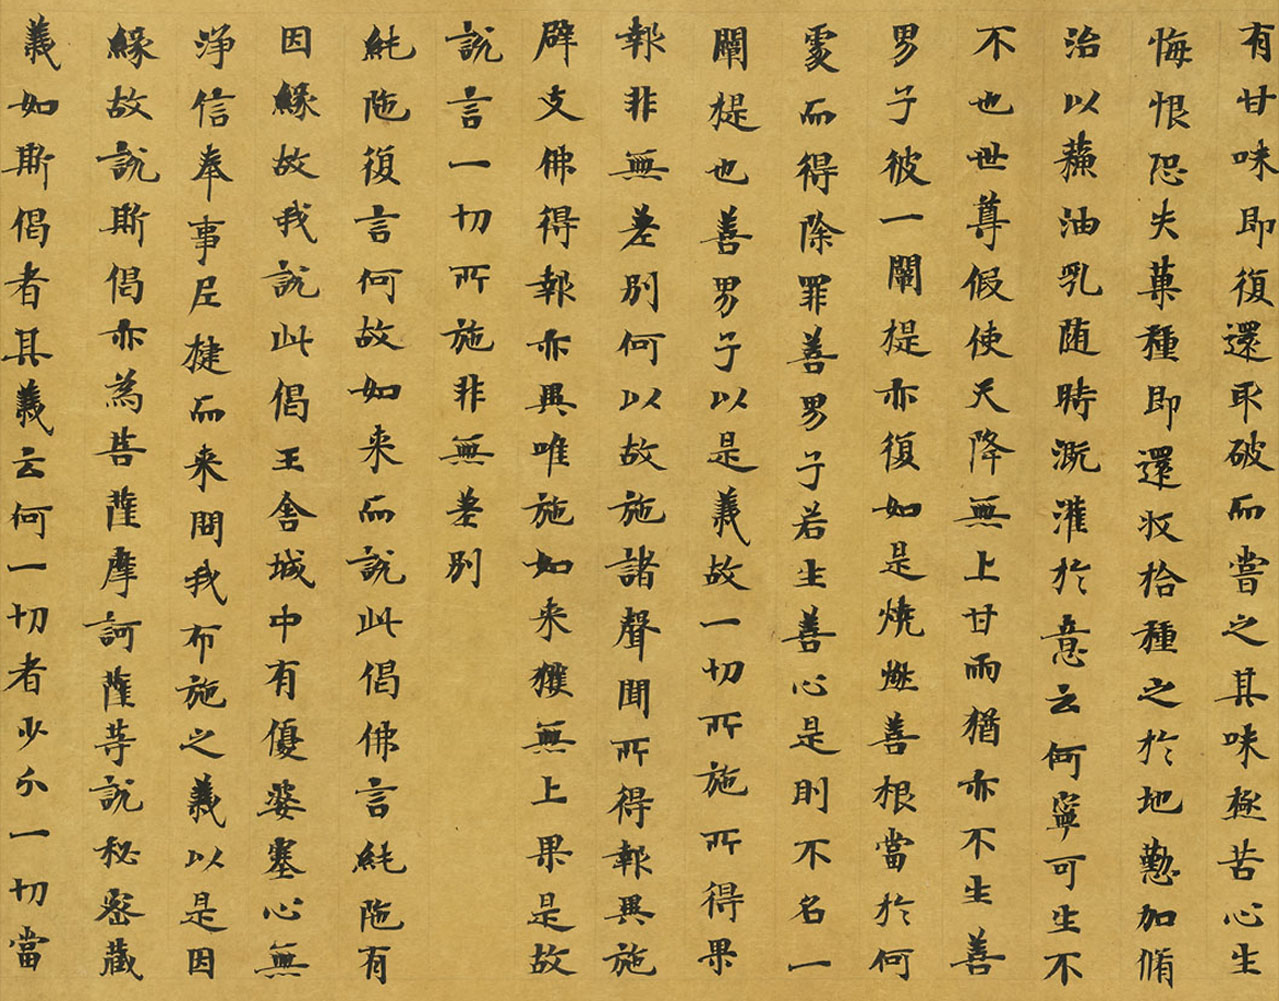 有甘味即復還取破而嘗之其味極苦心生
悔恨恐失菓種即還收拾種之於地懃加脩
治以蘓油乳随時溉灌於意云何寧可生不
不也世尊假使天降無上甘雨猶亦不生善
男子彼一闡提亦復如是燒燃善根當於何
處而得除罪善男子若生善心是則不名一
闡提也善男子以是義故一切所施所得果
報非無差別何以故施諸聲聞所得報異施
辟支佛得報亦異唯施如来獲無上果是故
説言一切所施非無差別
純陁復言何故如来而説此偈佛言純陁有
因緣故我説此偈王舍城中有優婆塞心無
淨信奉事尼揵而来問我布施之義以是因
緣故説斯偈亦為告薩摩訶薩等説秘密藏
義如斯偈者其義云何一切者少分一切當